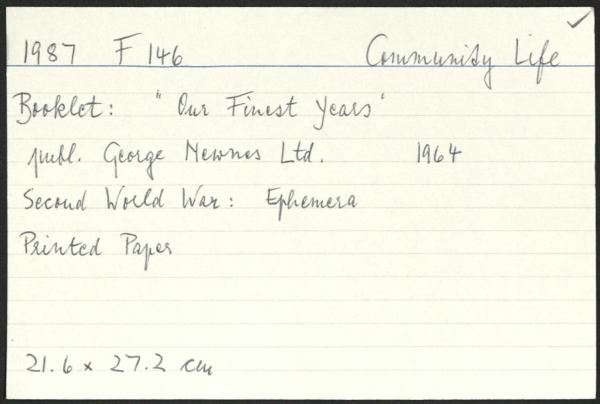 1987 F 146 Community Life
Booklet: "Our Finest Years"
publ. George Newnes Ltd. 1964
Second World War: Ephemera
Printed Paper
21.6 x 27.2 cm